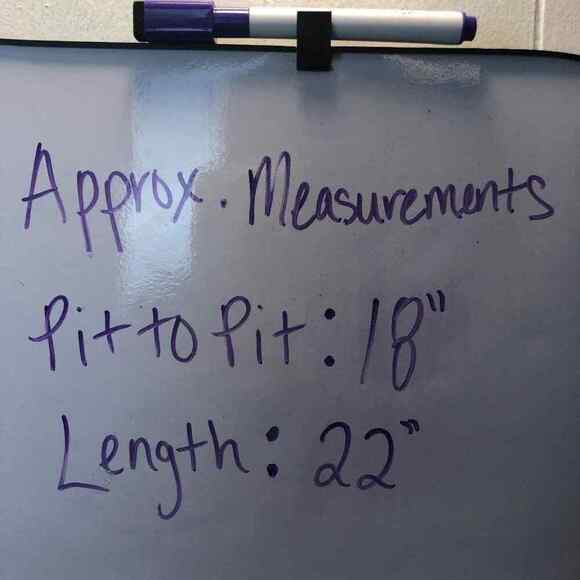 Approx. Measurements
Pit to Pit: 18"
Length: 22"